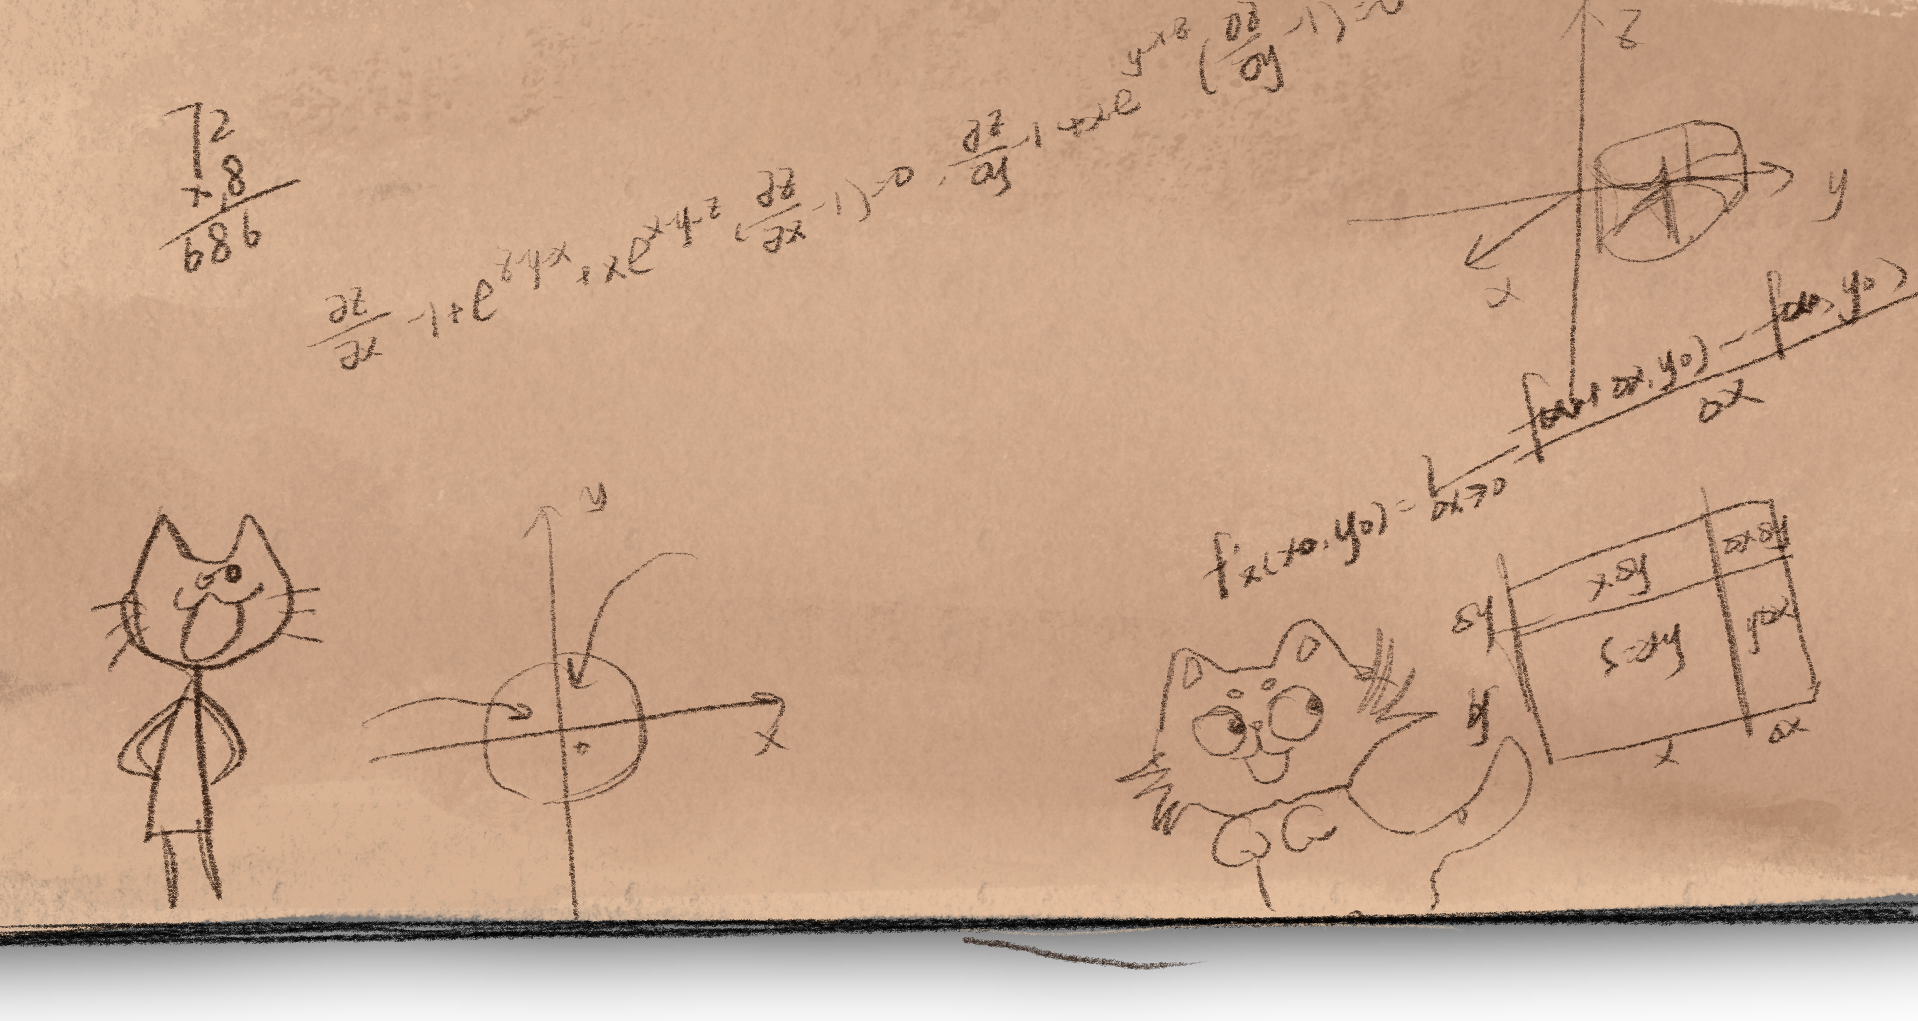 72
×8
686
∂z/∂x -1+e^{z-y-x}+xe^{x-y-z}(∂z/∂x-1)=0, ∂z/∂y-1+xe^{y-x-z}(∂z/∂y-1)=0
z
y
x
f'x(x0,y0)= Δx→0 f(x0+Δx,y0)-f(x0,y0)/Δx
y
x
xΔy
ΔxΔy
Δy
S=xy
yΔx
y
x
Δx